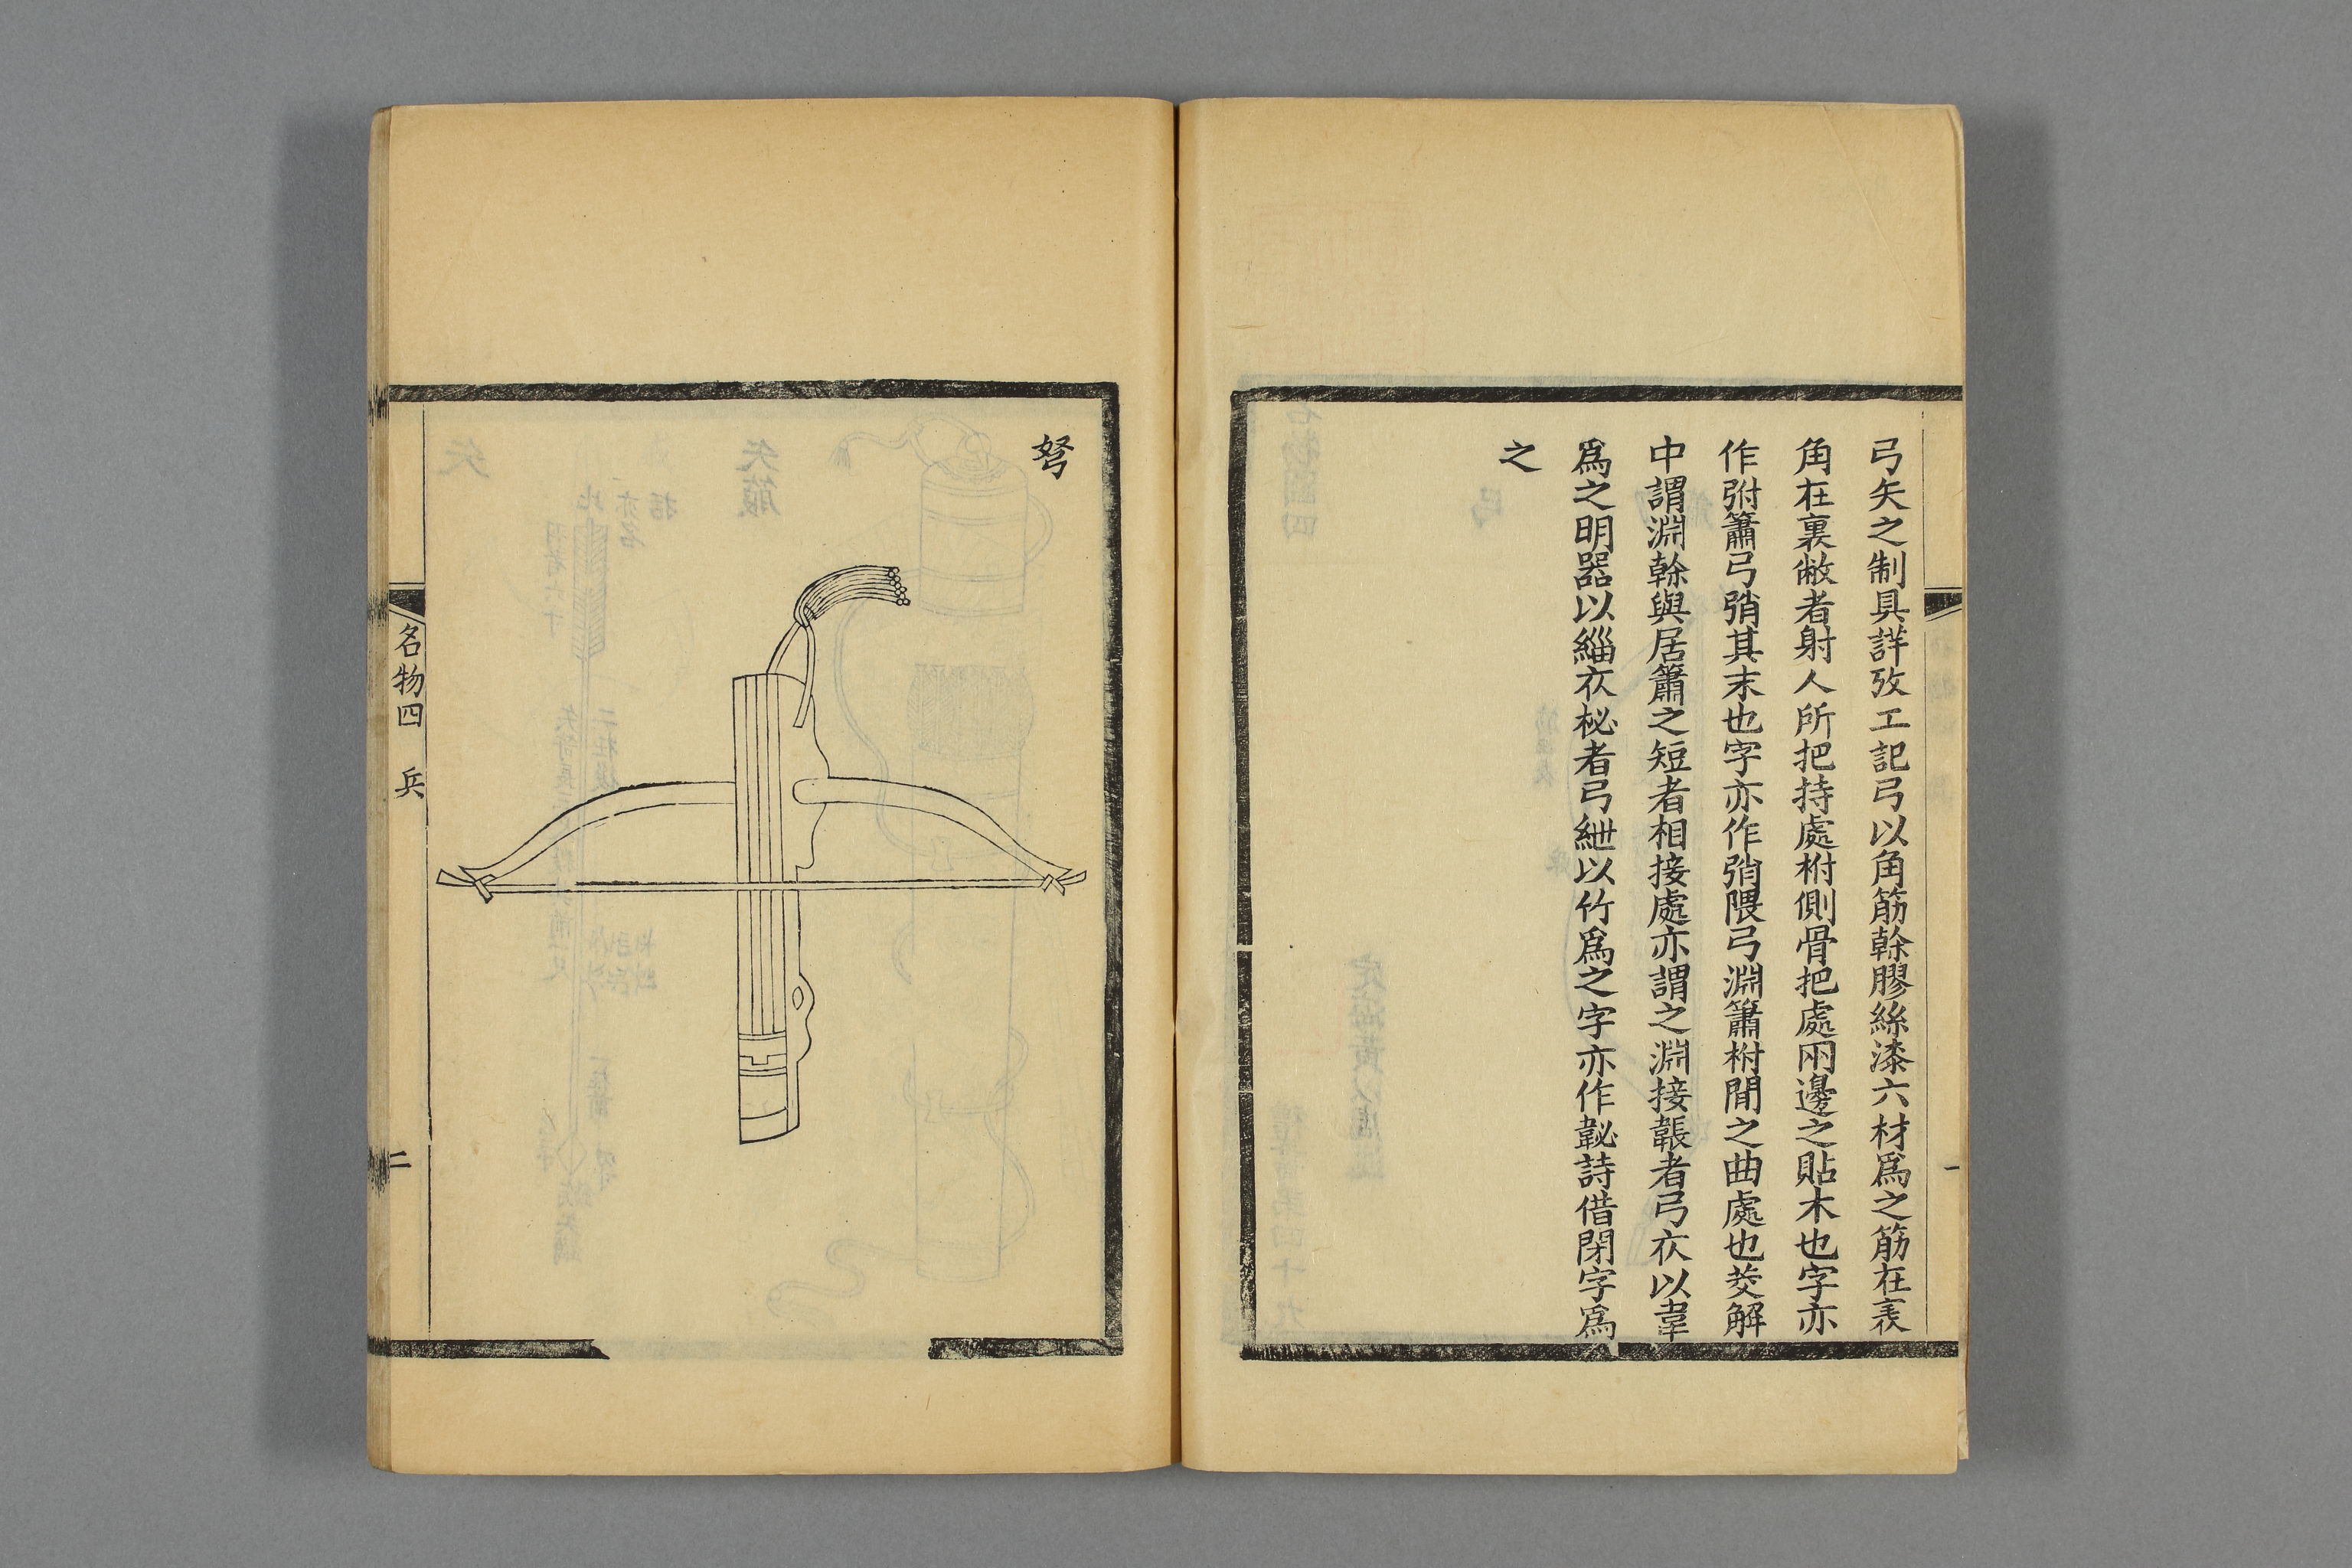 弓矢之制具詳攷工記弓以角筋榦膠絲漆六材爲之筋在表
角在裏敝者射人所把持處柎側骨把處兩邊之貼木也字亦
作弣簫弓弰其末也字亦作弰隈弓淵簫柎間之曲處也茭解
中謂淵榦與居簫之短者相接處亦謂之淵接韔者弓衣以韋
爲之明器以緇衣柲者弓紲以竹爲之字亦作䪐詩借閉字爲
之
一
弩
名物四 兵
二